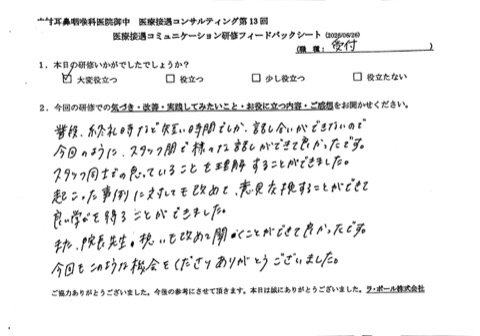 村耳鼻咽喉科医院御中　医療接遇コンサルティング第13回
医療接遇コミュニケーション研修フィードバックシート (2026/06/26)
(職種：受付)
1．本日の研修いかがでしたでしょうか？
☑ 大変役立つ　□ 役立つ　□ 少し役立つ　□ 役立たない
2．今回の研修での気づき・改善・実践してみたいこと・お役に立つ内容・ご感想をお聞かせください。
普段、終礼時など短い時間でしか、話し合いができないので
今回のように、スタッフ間で様々な話しができて良かったです。
スタッフ同士での思っていることを理解することができました。
起こった事例に対しても改めて、意見交換することができて
良い学びを得ることができました。
また、院長先生の想いも改めて聞くことができて良かったです。
今回もこのような機会をくださりありがとうございました。
ご協力ありがとうございました。今後の参考にさせて頂きます。本日は誠にありがとうございました。ラ・ポール株式会社